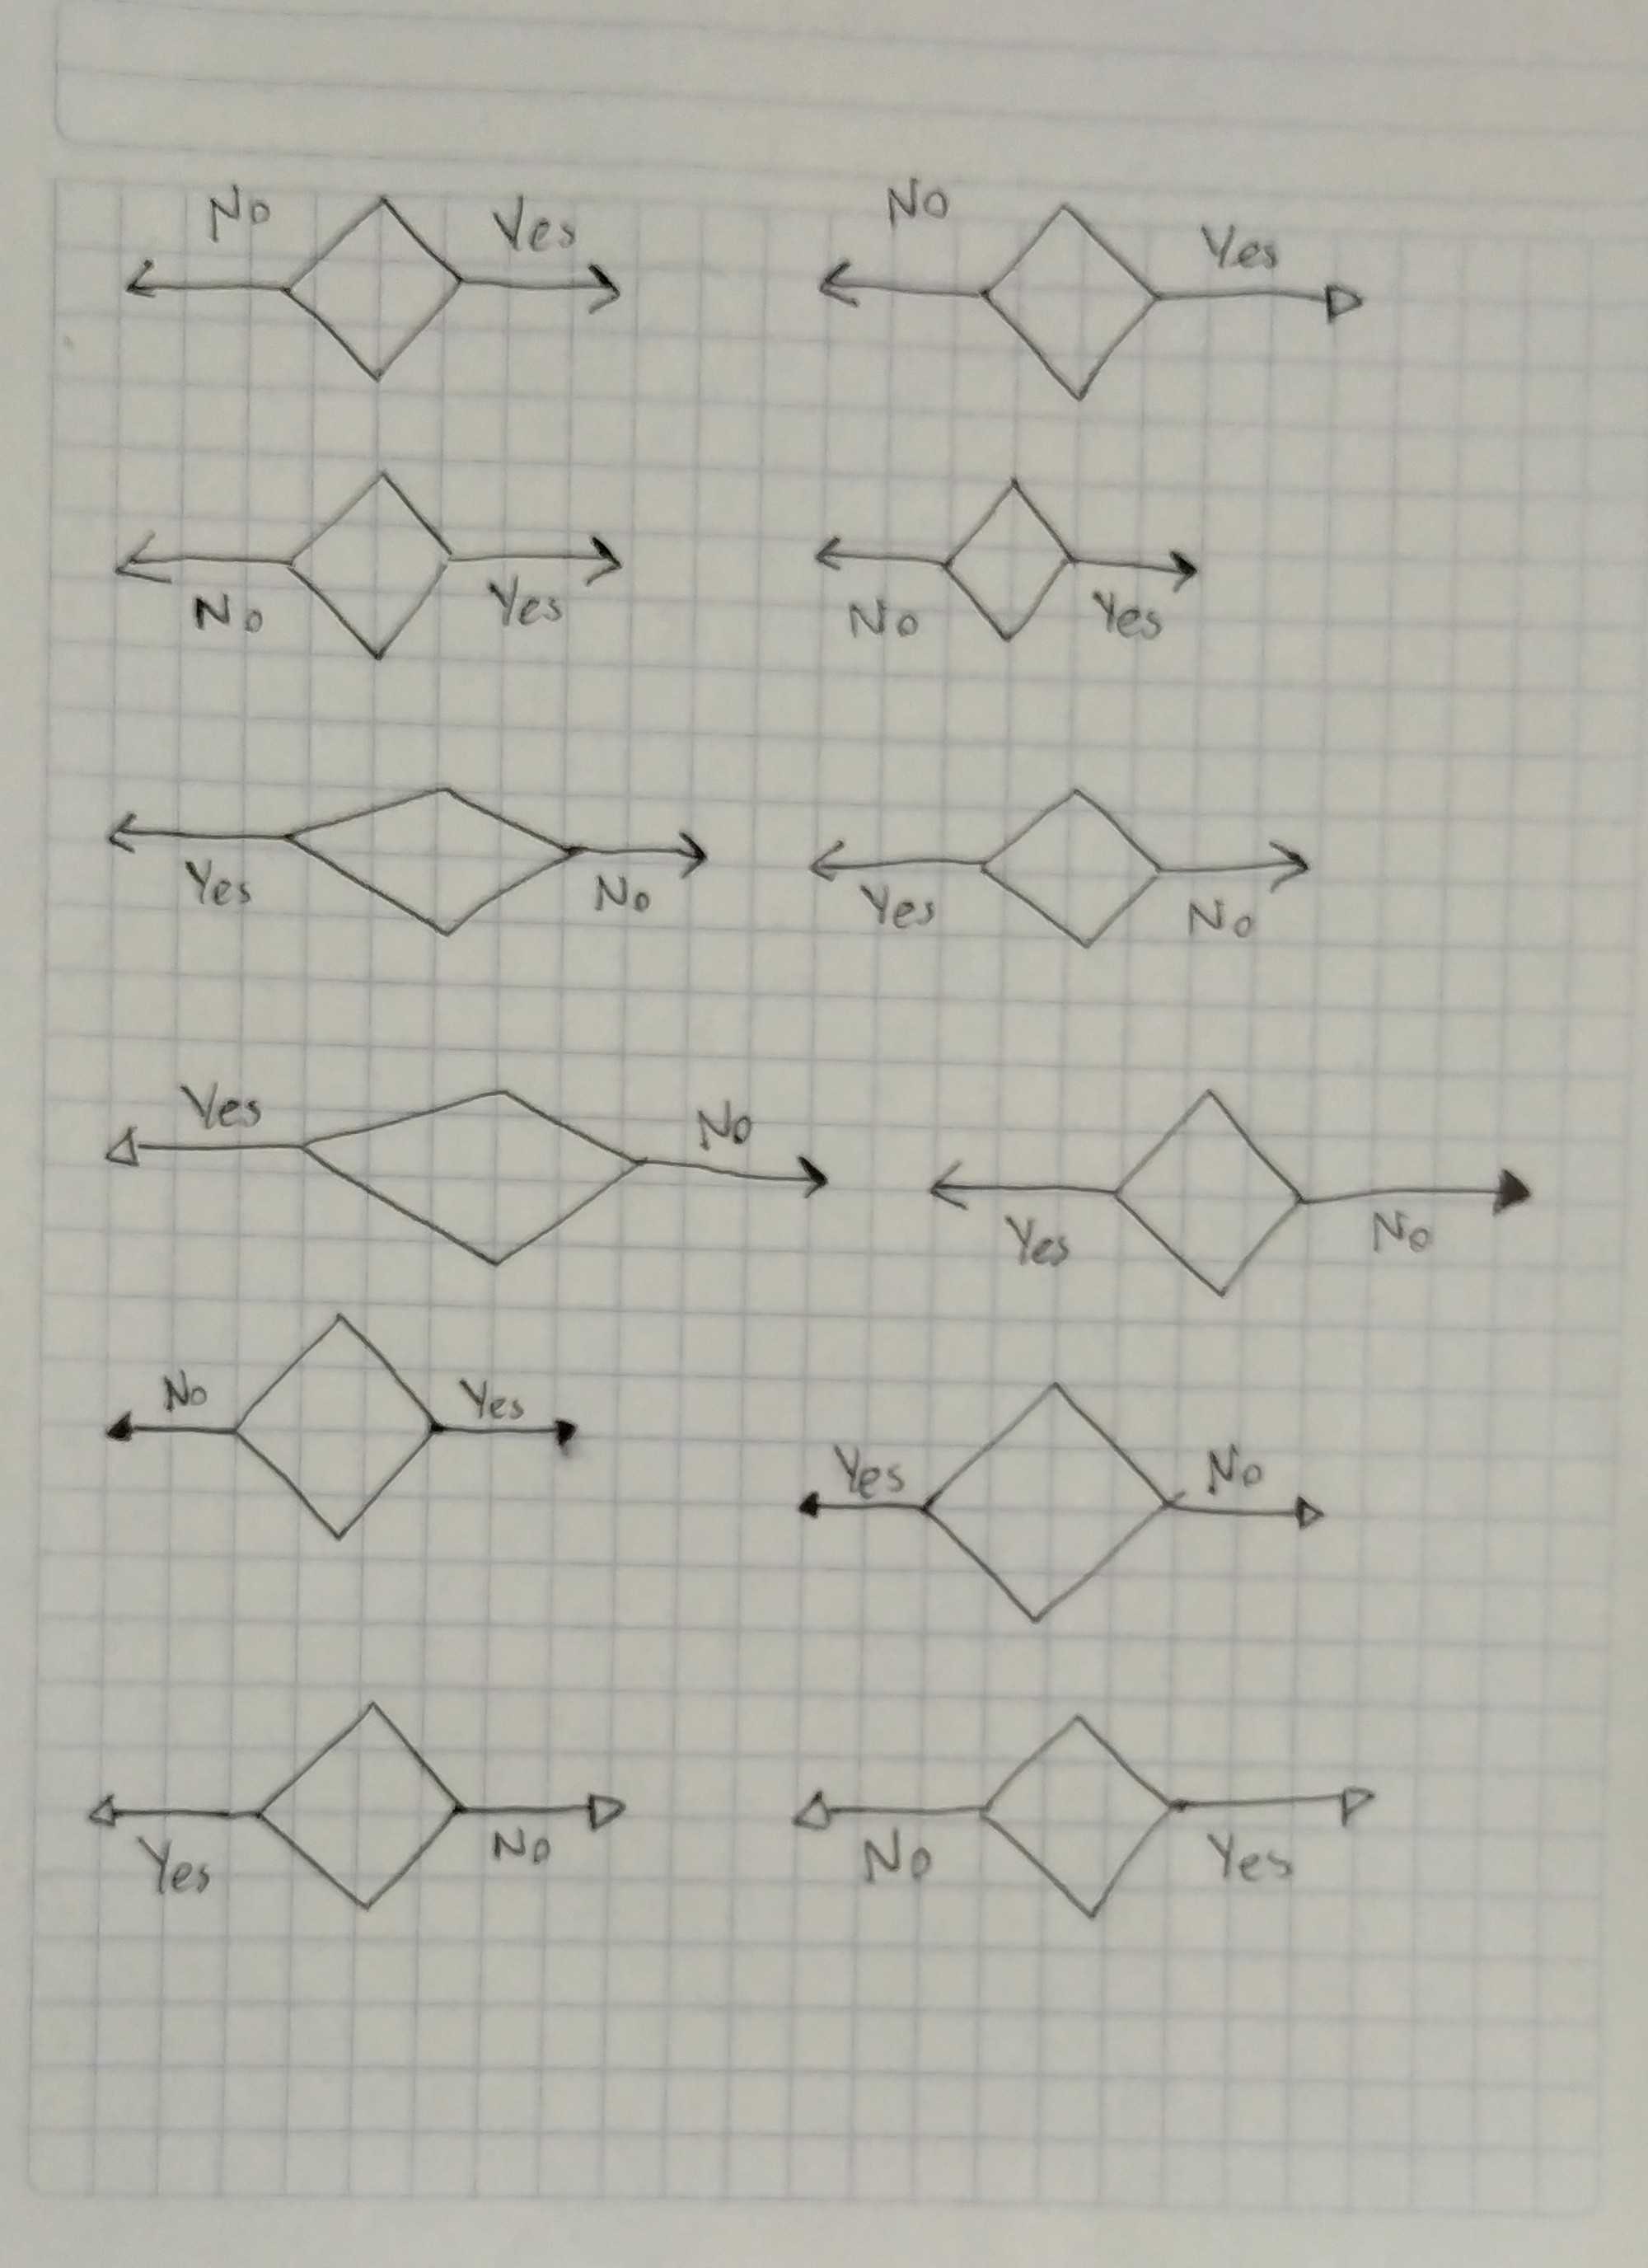 No Yes No Yes
No Yes No Yes
Yes No Yes No
Yes No Yes No
No Yes Yes No
Yes No No Yes